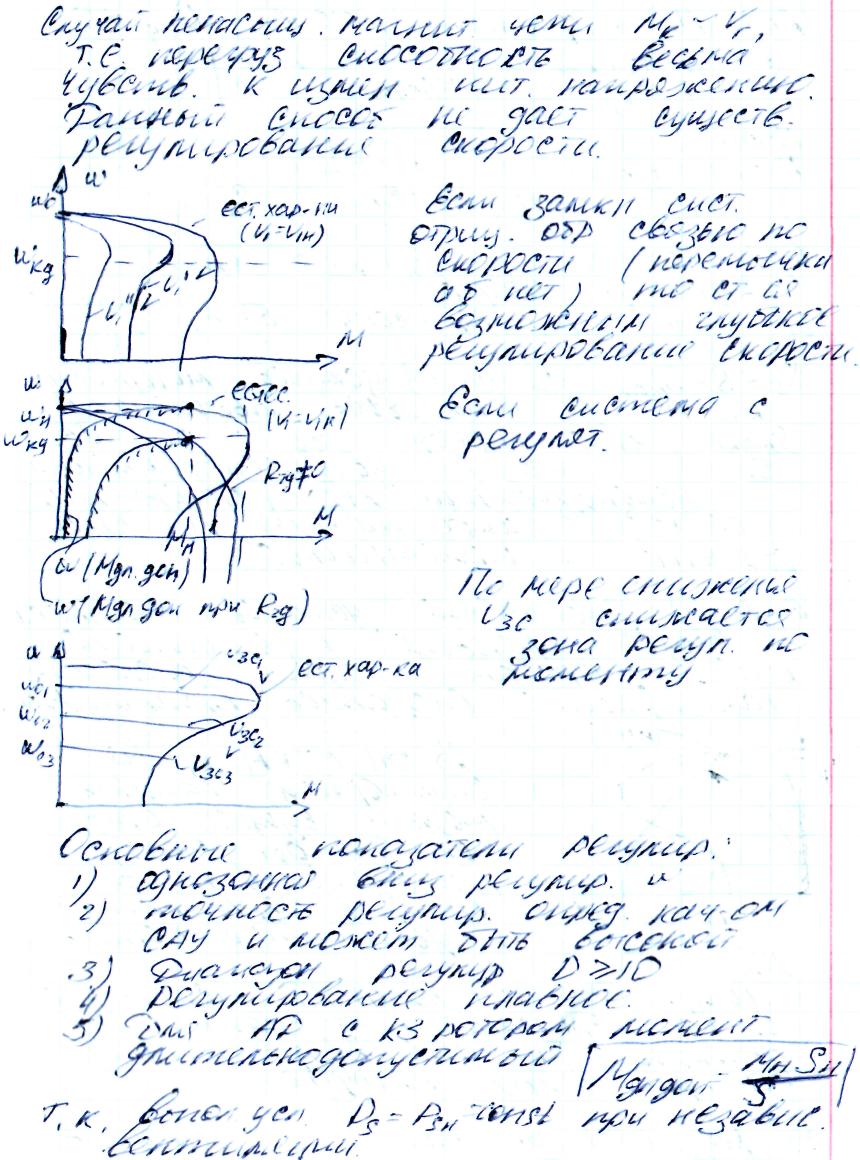 Случай ненасыщ. магнит. цепи Mк ~ V₁,
т.е. перегруз способность весьма
чувств. к измен пит. напряжению.
Данный способ не дает существ.
регулирование скорости.
ω
ω₀
ωкд
ест. хар-ки
(V₁=V₁н)
V₁"
V₁'
M
Если замкн сист.
отриц. обр связью по
скорости (перемычки
аб нет) то ст-ся
возможным глубокое
регулирование скорости.
ω
ωн
ωкд
естес.
(V₁=V₁н)
R₂д≠0
M
Mн
ω (Mдл.доп)
ω (Mдл доп при R₂д)
Если система с
регулят.
По мере снижения
Vзс снижается
зона регул. по
моменту.
ω
Vзс₁
ест. хар-ка
ω₀₁
ω₀₂
Vзс₂
ω₀₃
Vзс₃
M
Основные показатели регулир.:
1) однозонная вниз регулир. ω
2) точность регулир. опред. кач-ом
САУ и может быть высокой
3) Диапазон регулир D ≥ 10
4) Регулирование плавное.
5) Для АД с кз ротором момент
длительнодопустимый Mдл доп = Mн Sн / S
т.к. выпол усл. Ps = Psн = const при независ.
вентиляции.